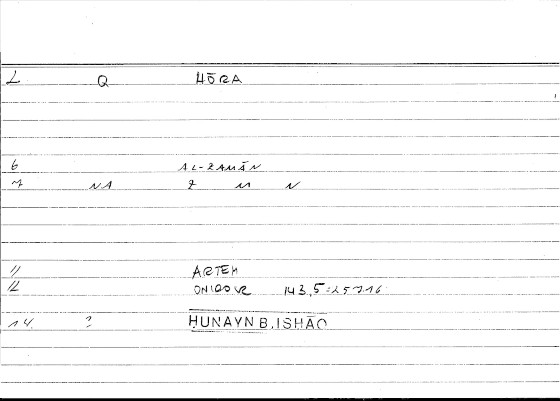 L Q HŌRA
6 AL-ZAMĀN
7 NA Z M N
11 ARTEM
12 ONIROCR 143,5=25716
14. ? HUNAYN B.ISHĀQ